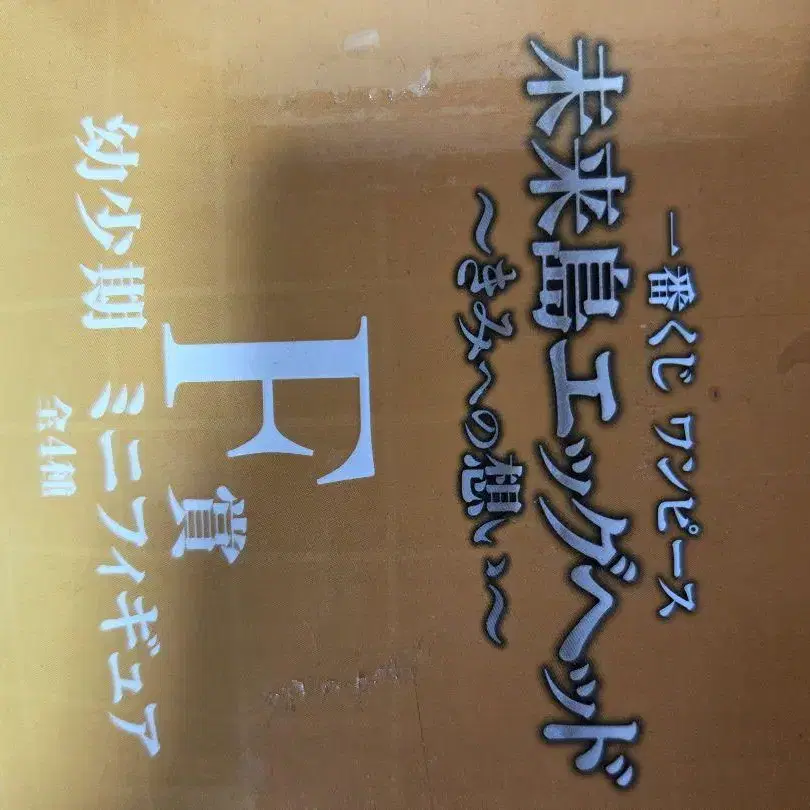 一番くじ ワンピース
未来島エッグヘッド
～きみへの想い～
F賞
幼少期 ミニフィギュア
全4種